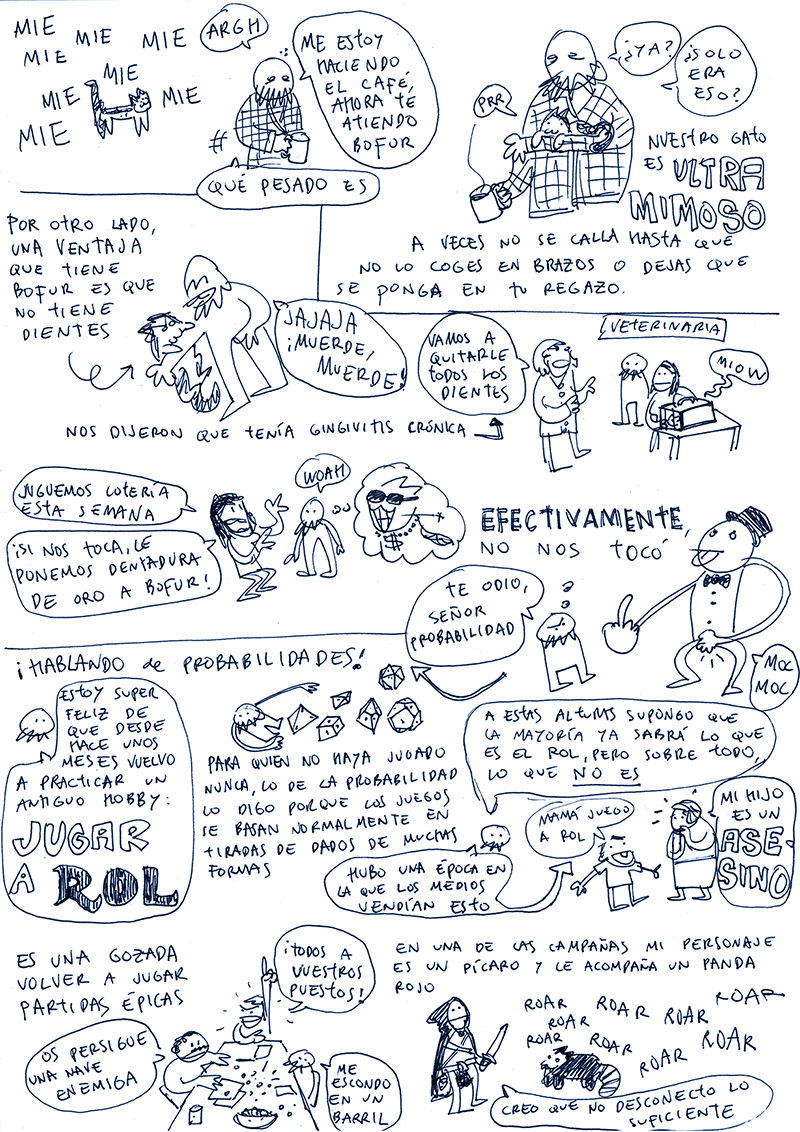 MIE
MIE
MIE
MIE
MIE
MIE
MIE
MIE
ARGH
ME ESTOY
HACIENDO
EL CAFÉ,
AHORA TE
ATIENDO
BOFUR
QUÉ PESADO ES
PRR
¿YA?
¿SOLO
ERA
ESO?
NUESTRO GATO
ES ULTRA
MIMOSO
A VECES NO SE CALLA HASTA QUE
NO LO COGES EN BRAZOS O DEJAS QUE
SE PONGA EN TU REGAZO.
POR OTRO LADO,
UNA VENTAJA
QUE TIENE
BOFUR ES QUE
NO TIENE
DIENTES
JAJAJA
¡MUERDE,
MUERDE!
NOS DIJERON QUE TENÍA GINGIVITIS CRÓNICA
VAMOS A
QUITARLE
TODOS LOS
DIENTES
VETERINARIA
MIOW
JUGUEMOS LOTERÍA
ESTA SEMANA
¡SI NOS TOCA, LE
PONEMOS DENTADURA
DE ORO A BOFUR!
WOAH
$
EFECTIVAMENTE,
NO NOS TOCÓ
TE ODIO,
SEÑOR
PROBABILIDAD
MOC
MOC
¡HABLANDO de PROBABILIDADES!
ESTOY SUPER
FELIZ DE
QUE DESDE
HACE UNOS
MESES VUELVO
A PRACTICAR UN
ANTIGUO HOBBY:
JUGAR
A ROL
PARA QUIEN NO HAYA JUGADO
NUNCA, LO DE LA PROBABILIDAD
LO DIGO PORQUE LOS JUEGOS
SE BASAN NORMALMENTE EN
TIRADAS DE DADOS DE MUCHAS
FORMAS
A ESTAS ALTURAS SUPONGO QUE
LA MAYORÍA YA SABRÁ LO QUE
ES EL ROL, PERO SOBRE TODO,
LO QUE NO ES
HUBO UNA ÉPOCA EN
LA QUE LOS MEDIOS
VENDÍAN ESTO
MAMÁ JUEGO
A ROL
MI HIJO
ES UN
ASE-
SINO
ES UNA GOZADA
VOLVER A JUGAR
PARTIDAS ÉPICAS
¡TODOS A
VUESTROS
PUESTOS!
OS PERSIGUE
UNA NAVE
ENEMIGA
ME
ESCONDO
EN UN
BARRIL
EN UNA DE LAS CAMPAÑAS MI PERSONAJE
ES UN PÍCARO Y LE ACOMPAÑA UN PANDA
ROJO
ROAR
ROAR
ROAR
ROAR
ROAR
ROAR
ROAR
ROAR
ROAR
CREO QUE NO DESCONECTO LO
SUFICIENTE